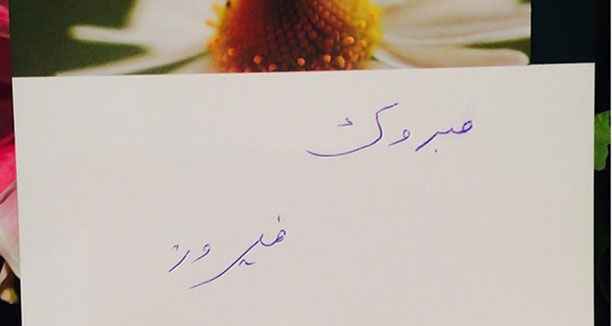 مبروك
فيروز